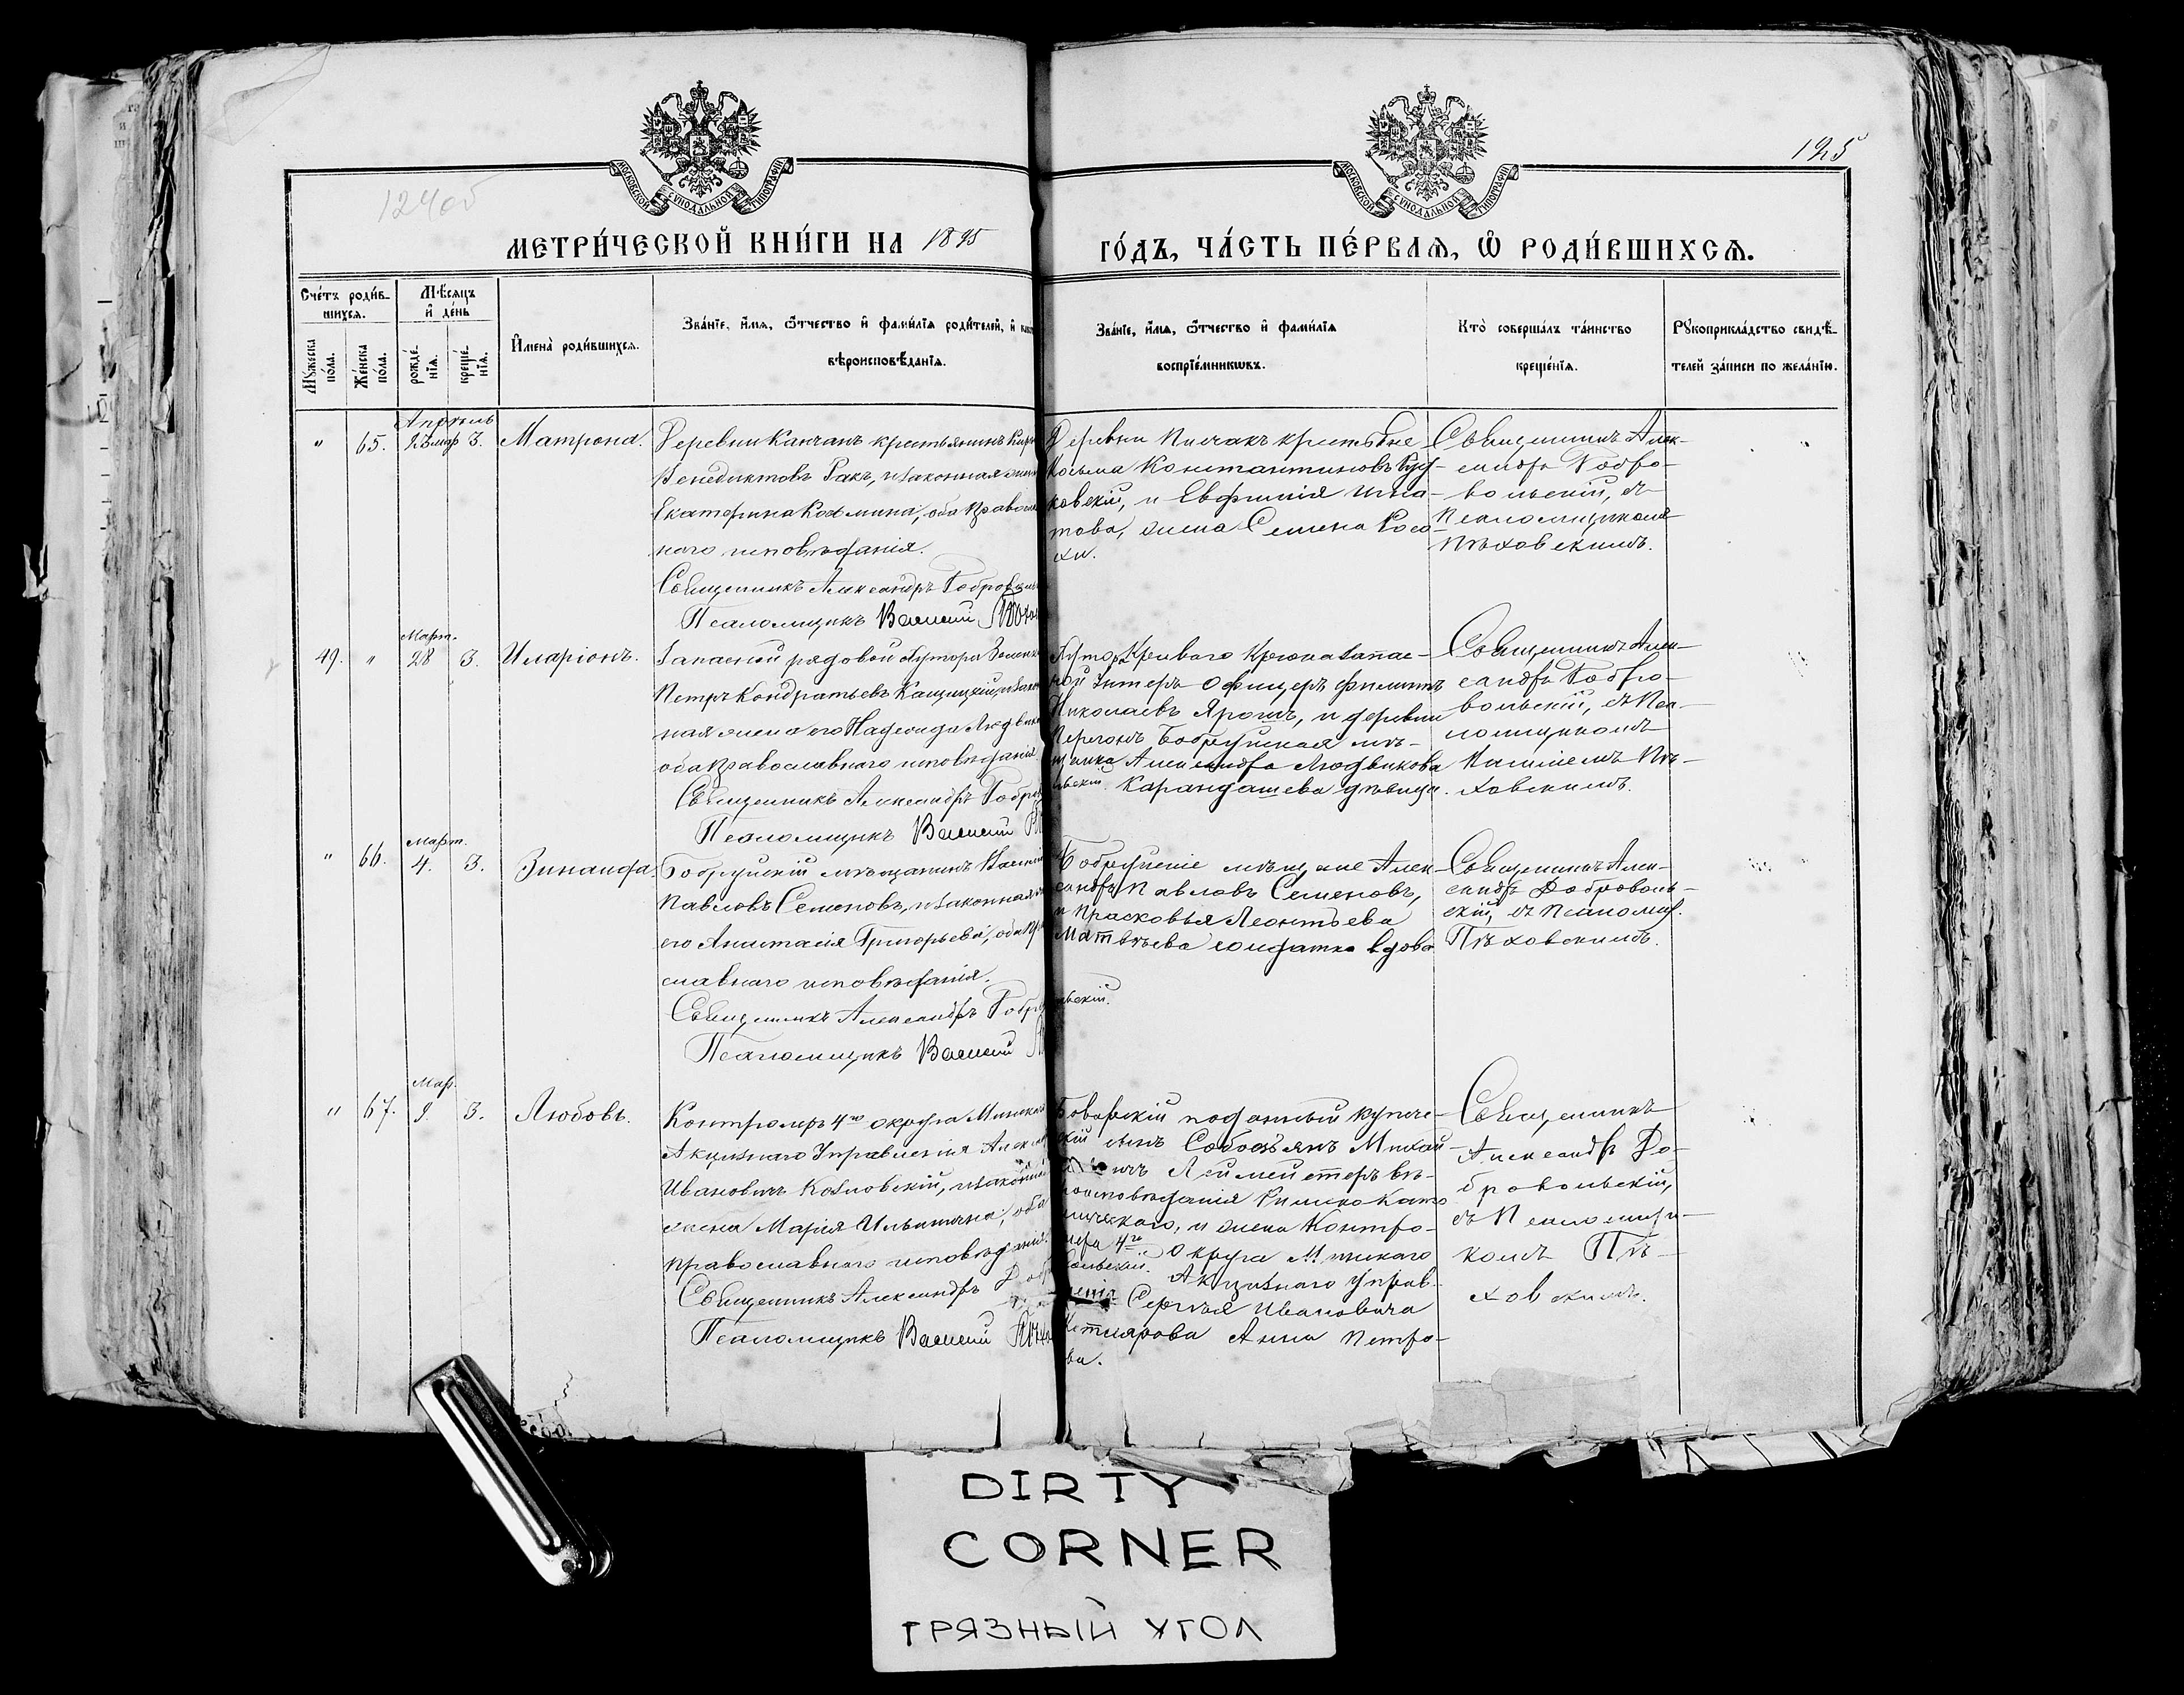 125
124об
МЕТРИ́ЧЕСКОЙ КНИ́ГИ НА 1895 ГО́ДЪ, ЧА́СТЬ ПЕ́РВАѦ, Ѡ РОДИ́ВШИХСѦ.
Сче́тъ роди́в-
шихся.
Мѣ́сяцъ
и де́нь
Мꙋ́жеска
по́ла.
Же́нска
по́ла.
рожде́-
нїѧ.
креще́-
нїѧ.
Имена̀ роди́вшихсѧ.
Зва́нїе, и́мѧ, ѻ́тчество и фами́лїѧ роди́телей, и
вѣроисповѣ́данїѧ.
Зва́нїе, и́мѧ, ѻ́тчество и фами́лїѧ
воспрїе́мникѡвъ.
Кто̀ соверша́лъ та́инство
креще́нїѧ.
Рꙋкоприкла́дство свидѣ́-
телей за́писи по жела́нїю.
Апрѣль
" 65. 23 мар 3. Матрона.
Деревни Канчанъ крестьянинъ
Венедиктовъ Ракъ, и законная
Екатерина Козмина, оба
наго исповѣданія.
Священникъ Александръ
Псаломщикъ Василій
Деревни Пилчакъ крестьяне
Косьма Константиновъ Руд-
ковскій, и Евфимія Игна-
това, жена Семена
Священникъ Алек-
сандръ Добро-
вольскій, съ
Псаломщикомъ
Пѣховскимъ.
Март.
49. " 28 3. Иларіонъ.
Запасной рядовой хутора
Петръ Кондратьевъ
ная жена его Надежда
оба православнаго исповѣданія.
Священникъ Александръ
Псаломщикъ Василій
Хутора Криваго Крюка запас-
ной Унтеръ Офицеръ Филиппъ
Николаевъ Ярошъ, и деревни
Бобруйская мѣ-
щанка Александра Людвикова
Карандашева дѣвица.
Священникъ Алек-
сандръ Добро-
вольскій, съ Пса-
ломщикомъ
Василіемъ Пѣ-
ховскимъ.
Март.
" 66. 4. 3. Зинаида.
Бобруйскій мѣщанинъ Василій
Павловъ Семеновъ, и законная
его Анастасія Григорьева, оба
славнаго исповѣданія.
Священникъ Александръ
Псаломщикъ Василій
Бобруйскіе мѣщане Алек-
сандръ Павловъ Семеновъ,
и Прасковья Леонтьева
Матвѣева солдатка вдова
Священникъ Алек-
сандръ Доброволь-
скій, съ Псаломщ.
Пѣховскимъ.
Мар.
" 67. 9. 3. Любовь.
Контролеръ 4го округа Минскаго
Акцизнаго Управленія
Ивановичъ Козловскій, и законная
жена Марія Ильинична, оба
православнаго исповѣданія.
Священникъ Александръ
Псаломщикъ Василій
Баварскій подданный купече-
скій сынъ Себастьянъ Михай-
Леймейстеръ вѣ-
роисповѣданія Римско Като-
лическаго, и жена Контро-
лера 4го Округа Минскаго
Акцизнаго Управ-
ленія Сергѣя Ивановича
Анна Петро-
ва.
Священникъ
Александръ До-
бровольскій,
съ Псаломщи-
комъ Пѣ-
ховскимъ.
DIRTY
CORNER
ГРЯЗНЫЙ УГОЛ